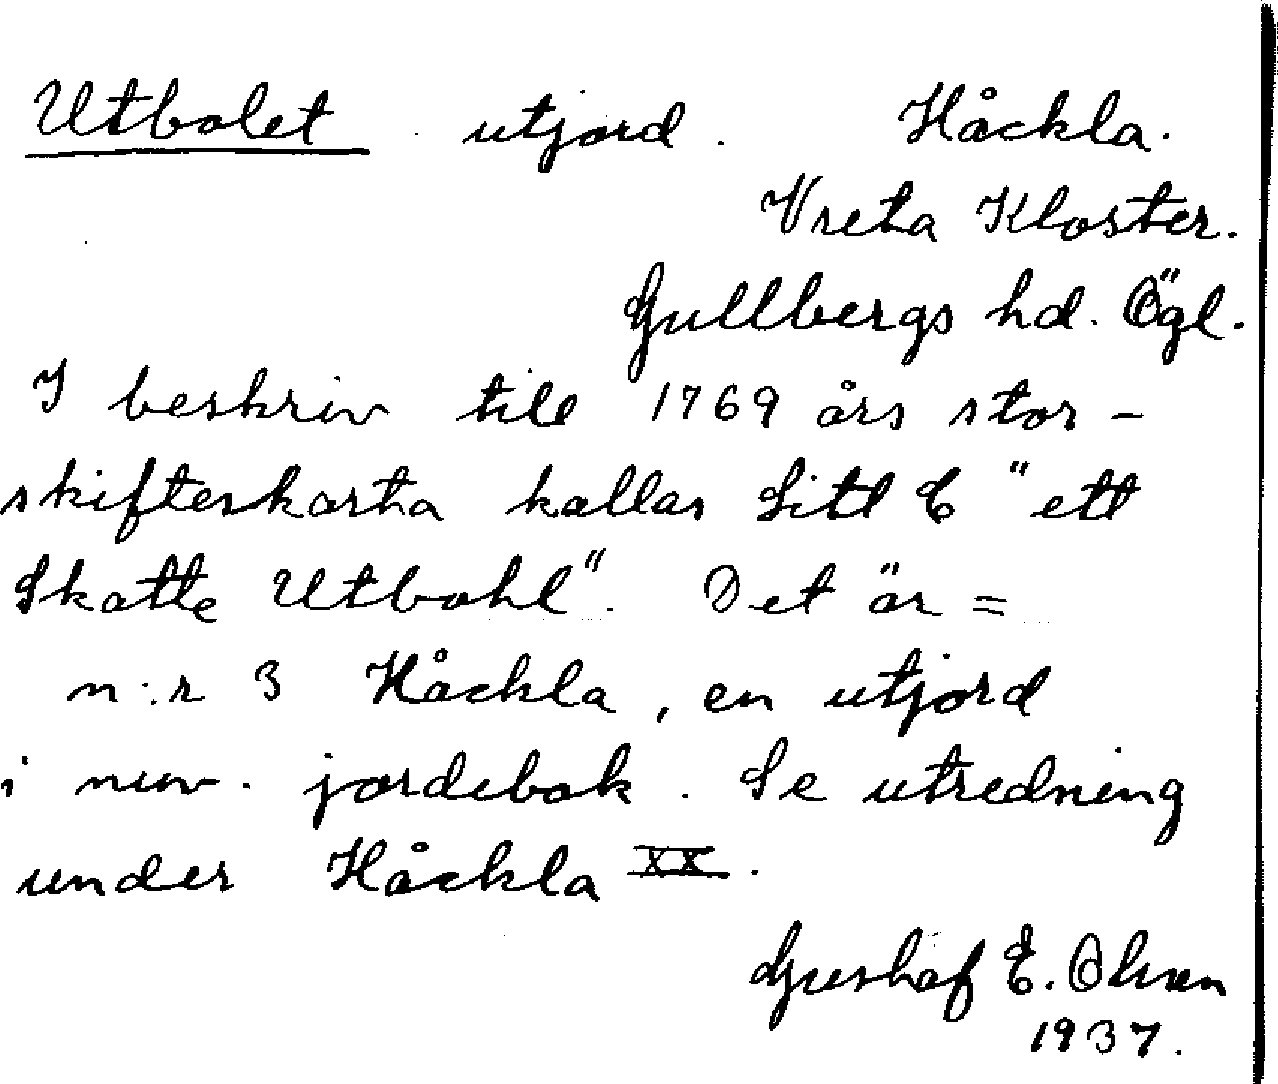 Utbolet utjord. Håckla.
Vreta Kloster.
Gullbergs hd. Ögl.
I beskriv till 1769 års stor-
skifteskarta kallas Litt C "ett
Skatte Utbohl". Det är =
n:r 3 Håckla, en utjord
i nuv. jordebok. Se utredning
under Håckla XX.
Gustaf E. Olsson
1937.